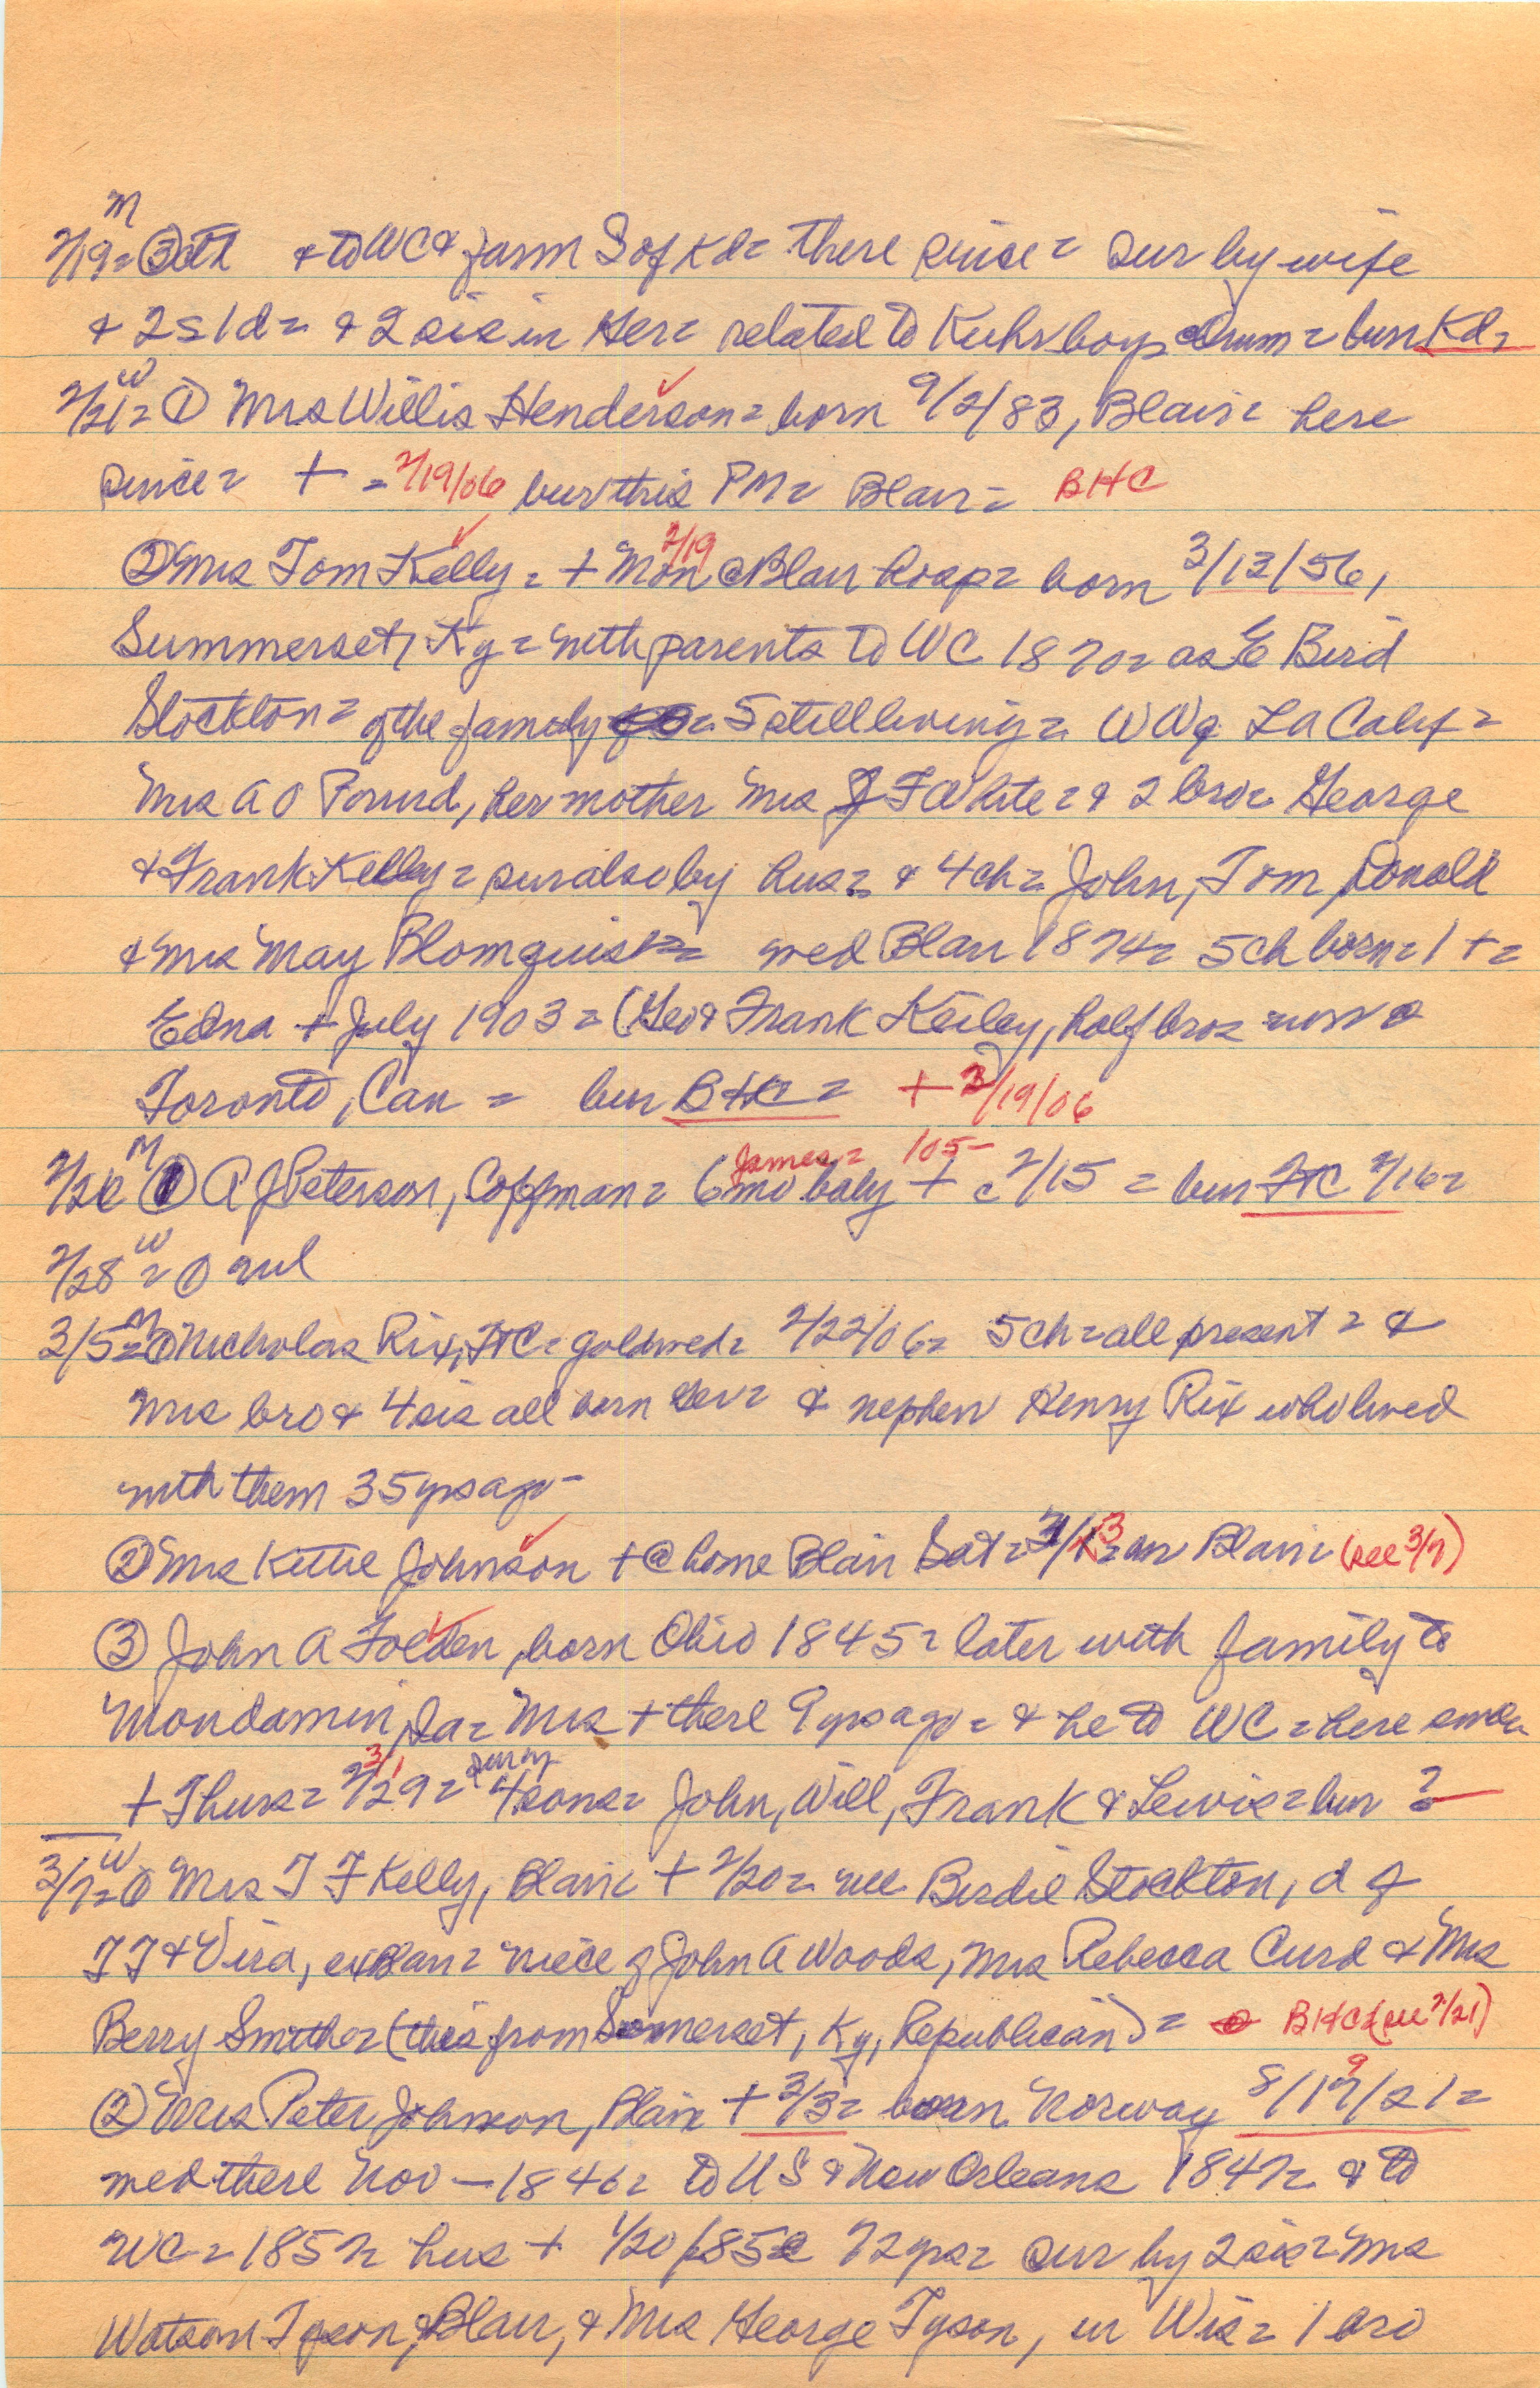 M
2/19= ③ cth & to WC & farm S of Kd= there since= sur by wife
& 2s 1d= & 2 sis in Ger= related to Kuhr boys = bur Kd=
W
2/21= ① Mrs Willis Henderson= born 9/2/83, Blair= here
since= + =2/19/06 bur this PM= Blair= BHC
② Mrs Tom Kelly= + Mon 2/19 @ Blair hosp= born 3/13/56,
Summerset, Ky= with parents to WC 1870= as E Bird
Stockton= of the family 5 still living= W W of La Calif=
Mrs A O Pound, her mother Mrs J F White= & 2 bro= George
& Frank Kelley= sur also by hus= & 4 ch= John, Tom, Donald
& Mrs May Blomquist= wed Blair 1874= 5 ch born= 1 +=
Edna + July 1903= (Geo & Frank Keiley, half bros now @
Toronto, Can = bur BHC= + 2/19/06
M James= 105-
2/26 ① A J Peterson, Coffman= 6 mo baby + c 2/15 = bur FTC 2/16=
W
2/28= ① nul
M
3/5= ① Nicholas Rix, FTC= gold wed= 2/22/06= 5 ch= all present= &
Mrs bro & 4 sis all born Ger= & nephew Henry Rix who lived
with them 35 yrs ago-
② Mrs Kittie Johnson + @ home Blair Sat= 3/3= Blair= (see 3/7)
③ John A Folden, born Ohio 1845= later with family to
Mondamin, Ia= Mrs + there 9 yrs ago= & he to WC= here since
+ Thurs= 2/29= 3/1 sur by 4 sons= John, Will, Frank & Lewis= bur ?
W
3/7= ① Mrs T F Kelly, Blair + 2/20= nee Birdie Stockton, d of
T J & Vira, ex Blair= niece of John A Woods, Mrs Rebecca Curd & Mrs
Berry Smith= (this from Somerset, Ky, Republican)= BHC (see 2/21)
② Mrs Peter Johnson, Blair + 3/3= born Norway 8/19/21=
wed there Nov - 1846= to US & New Orleans 1847= & to
WC= 1857= hus + 1/20/85 @ 72 yrs= sur by 2 sis= Mrs
Watson Tyson, Blair, & Mrs George Tyson, in Wis= 1 bro